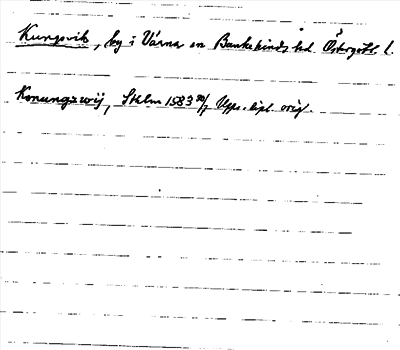 Kungsvik, by i Värna sn Bankekinds hd. Östergötl. l.
Konungzwij, Sthlm 1583 20/7 Upps. dipl. orig.